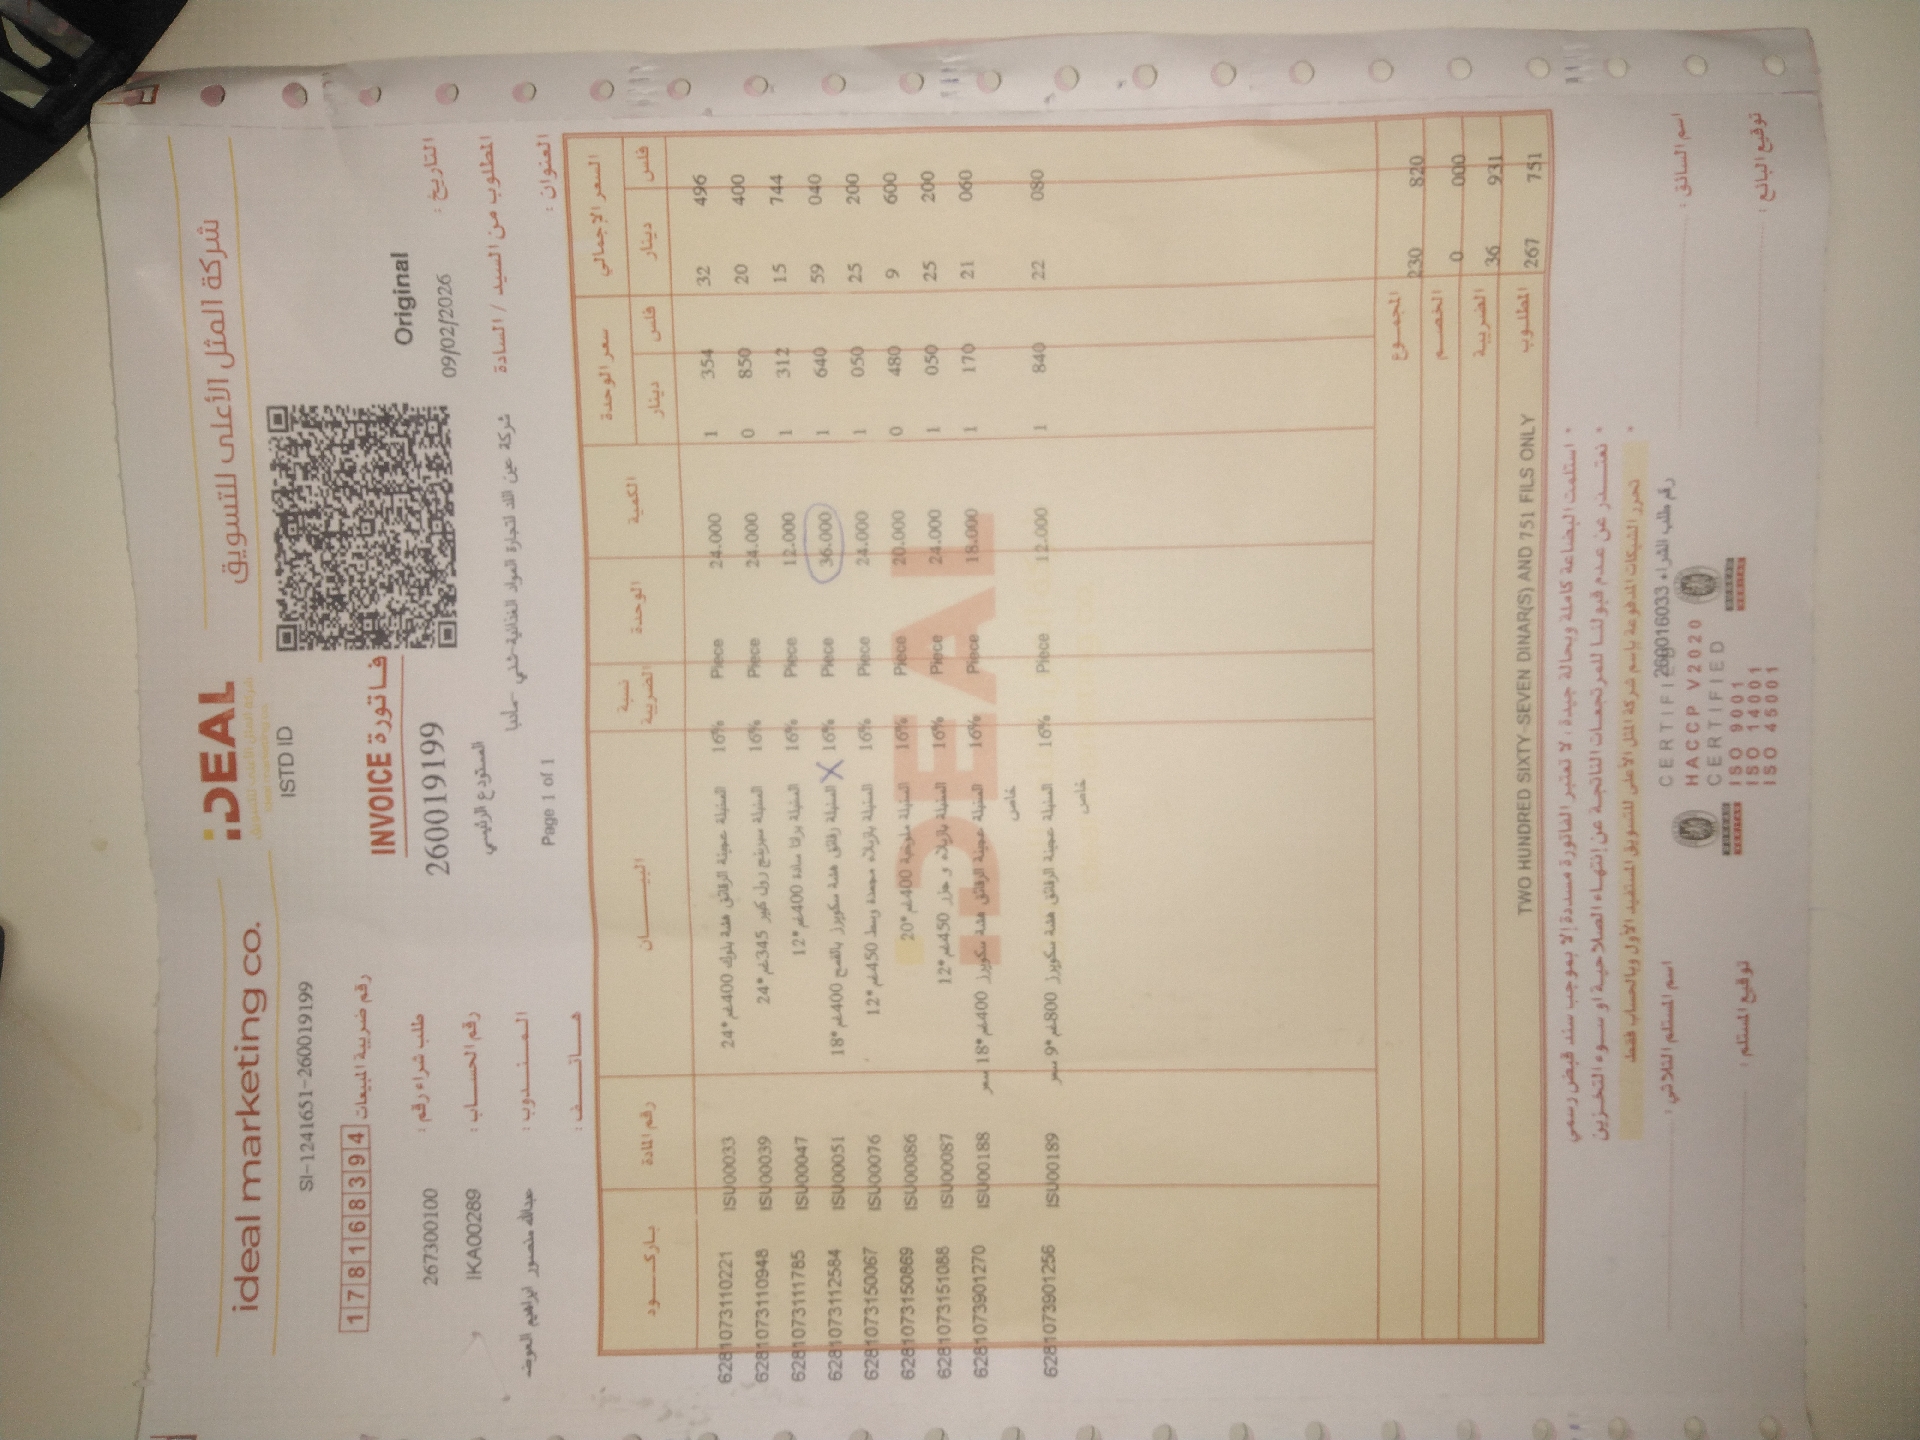 ideal marketing co.
iDEAL
شركة المثل الأعلى للتسويق
SI-1241651-260019199
ISTD ID
رقم ضريبة المبيعات 178168394
INVOICE فاتورة
Original
طلب شراء رقم : 267300100
260019199
التاريخ : 09/02/2026
رقم الحساب : IKA00289
المستودع الرئيسي
المطلوب من السيد / السادة
شركة عين اللد لتجارة المواد الغذائية
المندوب : عبدالله منصور ابراهيم العوضه
Page 1 of 1
العنوان :
هاتف :
باركود رقم المادة البيان نسبة الضريبة الوحدة الكمية سعر الوحدة السعر الإجمالي
دينار فلس دينار فلس
6281073110221 ISU00033 السنبلة عجينة الرقائق هشة بلوك 400غم*24 16% Piece 24.000 1 354 32 496
6281073110948 ISU00039 السنبلة سبرنج رول كبير 345غم*24 16% Piece 24.000 0 850 20 400
6281073111785 ISU00047 السنبلة براتا سادة 400غم*12 16% Piece 12.000 1 312 15 744
6281073112584 ISU00051 السنبلة رقائق هشة سكويرز بالقمح 400غم*18 X 16% Piece 36.000 1 640 59 040
6281073150067 ISU00076 السنبلة بازيلاء مجمدة وسط 450غم*12 16% Piece 24.000 1 050 25 200
6281073150869 ISU00086 السنبلة ملوخية 400غم*20 16% Piece 20.000 0 480 9 600
6281073151088 ISU00087 السنبلة بازيلاء و جزر 450غم*12 16% Piece 24.000 1 050 25 200
6281073901270 ISU00188 السنبلة عجينة الرقائق هشة سكويرز 400غم*18 سعر خاص 16% Piece 18.000 1 170 21 060
6281073901256 ISU00189 السنبلة عجينة الرقائق هشة سكويرز 800غم*9 سعر خاص 16% Piece 12.000 1 840 22 080
iDEAL
المجموع 230 820
الخصم 0 000
الضريبة 36 931
TWO HUNDRED SIXTY-SEVEN DINAR(S) AND 751 FILS ONLY المطلوب 267 751
• استلمت البضاعة كاملة وبحالة جيدة ، لا تعتبر الفاتورة مسددة إلا بموجب سند قبض رسمي
• نعتذر عن عدم قبولنا للمرتجعات الناتجة عن إنتهاء الصلاحية او سوء التخزين
• تحرر الشيكات المدفوعة بإسم شركة المثل الأعلى للتسويق المستفيد الأول وبالحساب فقط
اسم المستلم الثلاثي :
رقم طلب الشراء 260016033
اسم السائق :
CERTIFIED
HACCP V2020
CERTIFIED
ISO 9001
ISO 14001
ISO 45001
BUREAU VERITAS
BUREAU VERITAS
توقيع المستلم :
توقيع البائع :